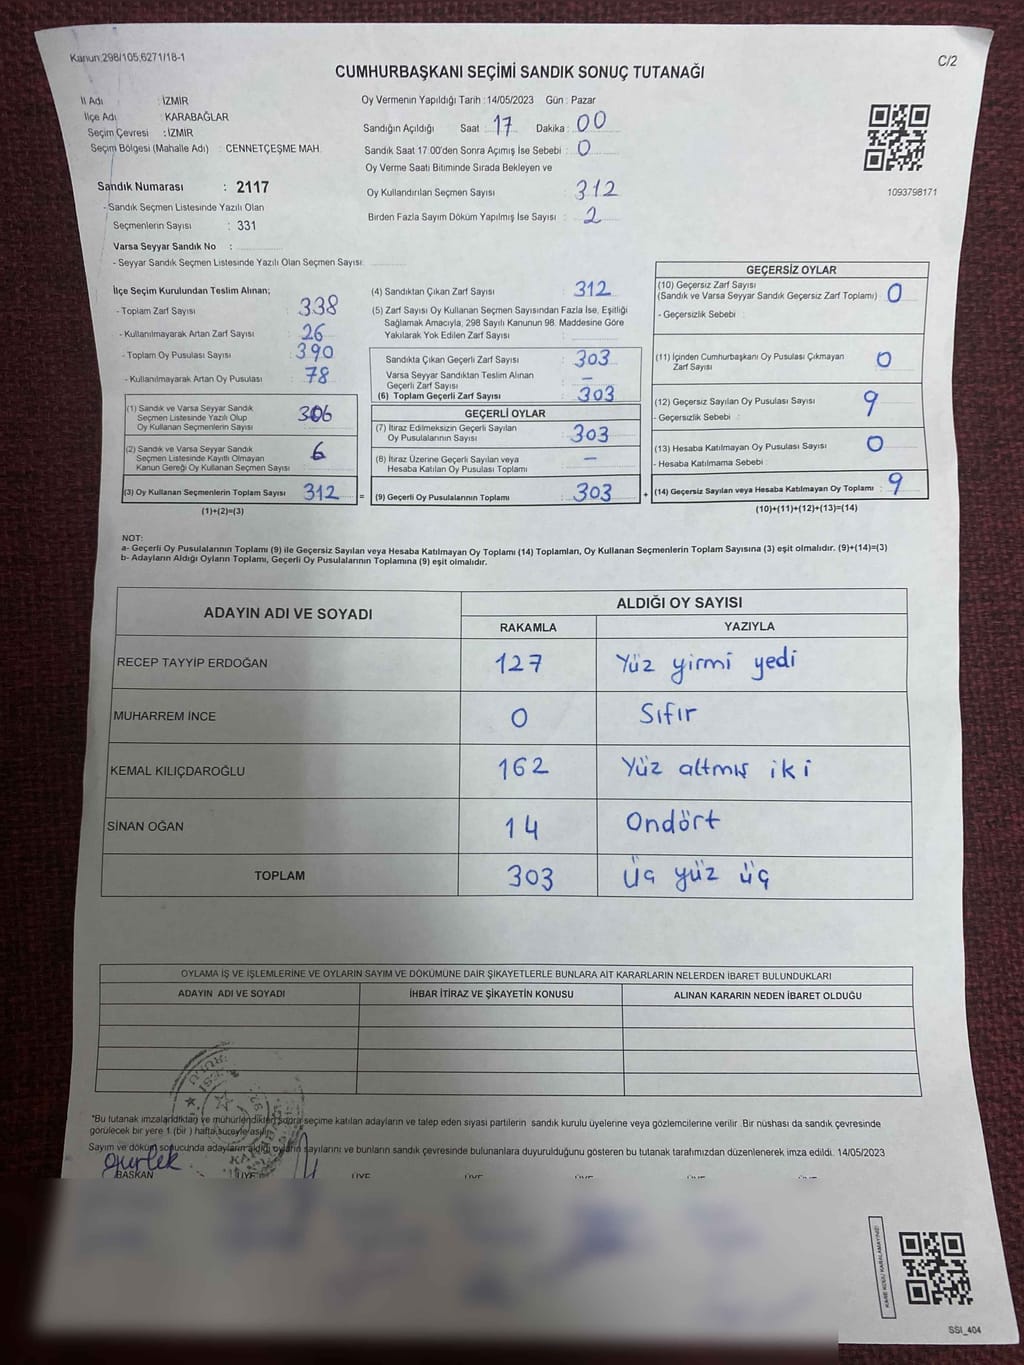 Kanun:298/105,6271/18-1
C/2
CUMHURBAŞKANI SEÇİMİ SANDIK SONUÇ TUTANAĞI
İl Adı : İZMİR
İlçe Adı : KARABAĞLAR
Seçim Çevresi : İZMİR
Seçim Bölgesi (Mahalle Adı) : CENNETÇEŞME MAH.
Sandık Numarası : 2117
- Sandık Seçmen Listesinde Yazılı Olan
Seçmenlerin Sayısı : 331
Varsa Seyyar Sandık No :
- Seyyar Sandık Seçmen Listesinde Yazılı Olan Seçmen Sayısı:
Oy Vermenin Yapıldığı Tarih : 14/05/2023 Gün : Pazar
Sandığın Açıldığı Saat : 17 Dakika : 00
Sandık Saat 17:00'den Sonra Açımış İse Sebebi : 0
Oy Verme Saati Bitiminde Sırada Bekleyen ve
Oy Kullandırılan Seçmen Sayısı : 312
Birden Fazla Sayım Döküm Yapılmış İse Sayısı : 2
1093798171
İlçe Seçim Kurulundan Teslim Alınan;
- Toplam Zarf Sayısı : 338
- Kullanılmayarak Artan Zarf Sayısı : 26
- Toplam Oy Pusulası Sayısı : 390
- Kullanılmayarak Artan Oy Pusulası : 78
(1) Sandık ve Varsa Seyyar Sandık
Seçmen Listesinde Yazılı Olup
Oy Kullanan Seçmenlerin Sayısı : 306
(2) Sandık ve Varsa Seyyar Sandık
Seçmen Listesinde Kayıtlı Olmayan
Kanun Gereği Oy Kullanan Seçmen Sayısı : 6
(3) Oy Kullanan Seçmenlerin Toplam Sayısı : 312 =
(1)+(2)=(3)
(4) Sandıktan Çıkan Zarf Sayısı : 312
(5) Zarf Sayısı Oy Kullanan Seçmen Sayısından Fazla İse, Eşitliği
Sağlamak Amacıyla, 298 Sayılı Kanunun 98. Maddesine Göre
Yakılarak Yok Edilen Zarf Sayısı :
Sandıkta Çıkan Geçerli Zarf Sayısı : 303
Varsa Seyyar Sandıktan Teslim Alınan
Geçerli Zarf Sayısı : –
(6) Toplam Geçerli Zarf Sayısı : 303
GEÇERLİ OYLAR
(7) İtiraz Edilmeksizin Geçerli Sayılan
Oy Pusulalarının Sayısı : 303
(8) İtiraz Üzerine Geçerli Sayılan veya
Hesaba Katılan Oy Pusulası Toplamı : –
(9) Geçerli Oy Pusulalarının Toplamı : 303 +
GEÇERSİZ OYLAR
(10) Geçersiz Zarf Sayısı
(Sandık ve Varsa Seyyar Sandık Geçersiz Zarf Toplamı) : 0
- Geçersizlik Sebebi :
(11) İçinden Cumhurbaşkanı Oy Pusulası Çıkmayan
Zarf Sayısı : 0
(12) Geçersiz Sayılan Oy Pusulası Sayısı : 9
- Geçersizlik Sebebi :
(13) Hesaba Katılmayan Oy Pusulası Sayısı : 0
- Hesaba Katılmama Sebebi :
(14) Geçersiz Sayılan veya Hesaba Katılmayan Oy Toplamı : 9
(10)+(11)+(12)+(13)=(14)
NOT:
a- Geçerli Oy Pusulalarının Toplamı (9) ile Geçersiz Sayılan veya Hesaba Katılmayan Oy Toplamı (14) Toplamları, Oy Kullanan Seçmenlerin Toplam Sayısına (3) eşit olmalıdır. (9)+(14)=(3)
b- Adayların Aldığı Oyların Toplamı, Geçerli Oy Pusulalarının Toplamına (9) eşit olmalıdır.
ADAYIN ADI VE SOYADI
ALDIĞI OY SAYISI
RAKAMLA YAZIYLA
RECEP TAYYİP ERDOĞAN 127 Yüz yirmi yedi
MUHARREM İNCE 0 Sıfır
KEMAL KILIÇDAROĞLU 162 Yüz altmış iki
SİNAN OĞAN 14 Ondört
TOPLAM 303 Üç yüz üç
OYLAMA İŞ VE İŞLEMLERİNE VE OYLARIN SAYIM VE DÖKÜMÜNE DAİR ŞİKAYETLERLE BUNLARA AİT KARARLARIN NELERDEN İBARET BULUNDUKLARI
ADAYIN ADI VE SOYADI İHBAR İTİRAZ VE ŞİKAYETİN KONUSU ALINAN KARARIN NEDEN İBARET OLDUĞU
*Bu tutanak imzalandıktan ve mühürlendikten sonra seçime katılan adayların ve talep eden siyasi partilerin sandık kurulu üyelerine veya gözlemcilerine verilir. Bir nüshası da sandık çevresinde
görülecek bir yere 1 (bir) hafta süreyle asılır.
Sayım ve döküm sonucunda adayların aldığı oyların sayılarını ve bunların sandık çevresinde bulunanlara duyurulduğunu gösteren bu tutanak tarafımızdan düzenlenerek imza edildi. 14/05/2023
BAŞKAN ÜYE ÜYE ÜYE ÜYE ÜYE
KARE KODU KARALAMAYINIZ!
SSI_404